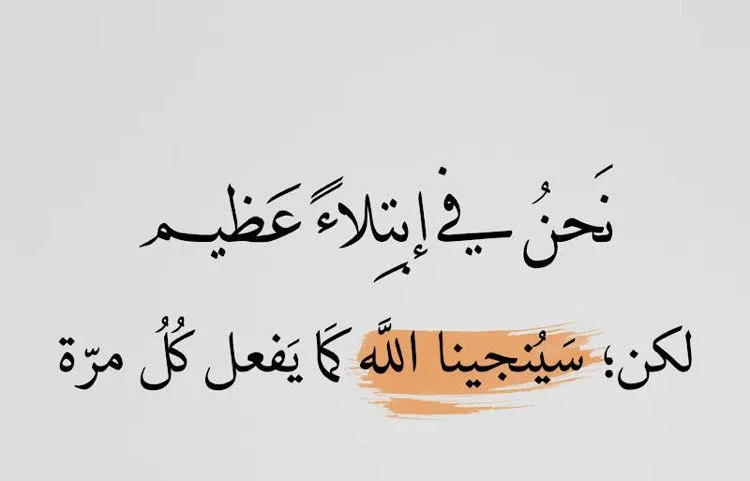 نَحنُ في إبتِلاءً عَظيم
لكن؛ سَيُنجينا اللَّه كَما يَفعل كُلُ مرّة